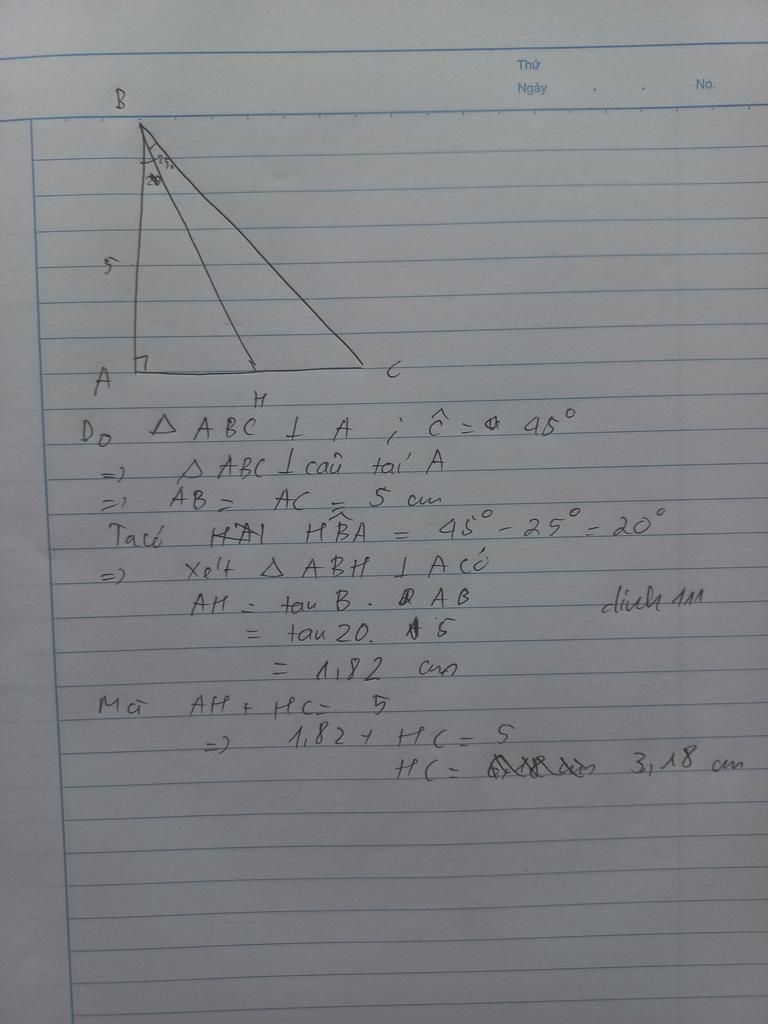 Thứ
Ngày . . No.
B
25°
20
5
A
H
C
Do △ ABC ⊥ A ; Ĉ = 45°
=> △ ABC ⊥ cân tại A
=> AB = AC = 5 cm
Ta có HBA = 45° - 25° = 20°
=> Xét △ ABH ⊥ A có
AH = tan B . AB
= tan 20. 5
dinh 111
= 1,82 cm
Mà AH + HC = 5
=> 1,82 + HC = 5
HC = 3,18 cm